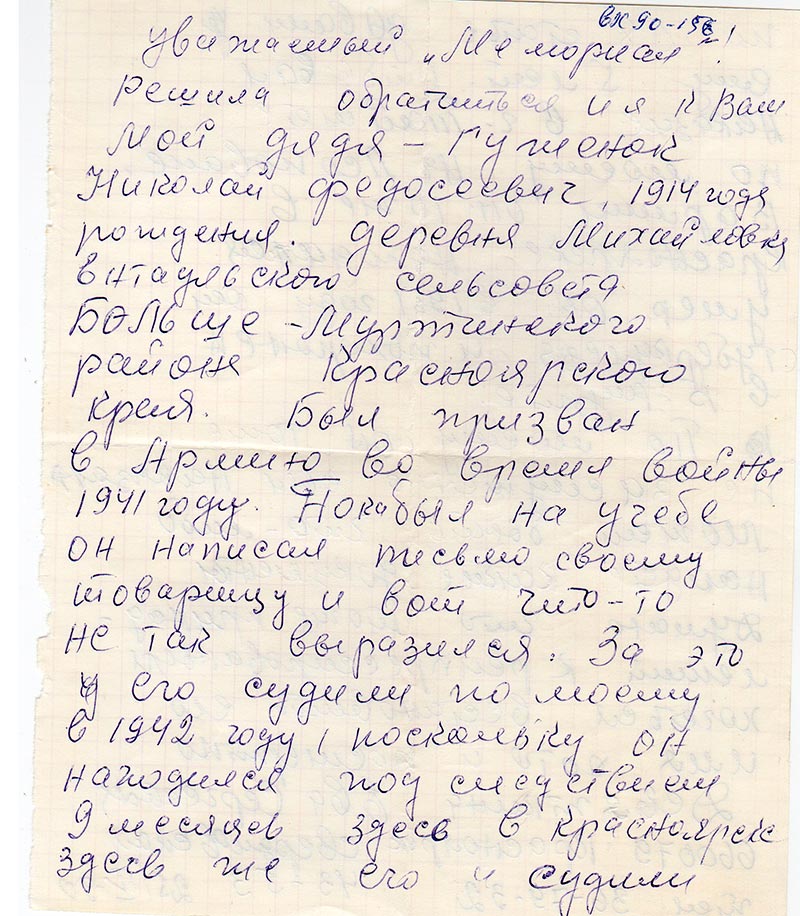 вх 90-156
Уважаемый „Мемориал"!
Решила обратиться и я к Вам
Мой дядя – Гуменюк
Николай Федосеевич, 1914 года
рождения. деревня Михайловка
Ентаульского сельсовета
Больше-Муртинского
района Красноярского
края. Был призван
в Армию во время войны
1941 году. Пока был на учебе
он написал письмо своему
товарищу и вот что-то
не так выразился. За это
его судили по моему
в 1942 году, поскольку он
находился под следствием
9 месяцев здесь в Красноярске
здесь же его и судили